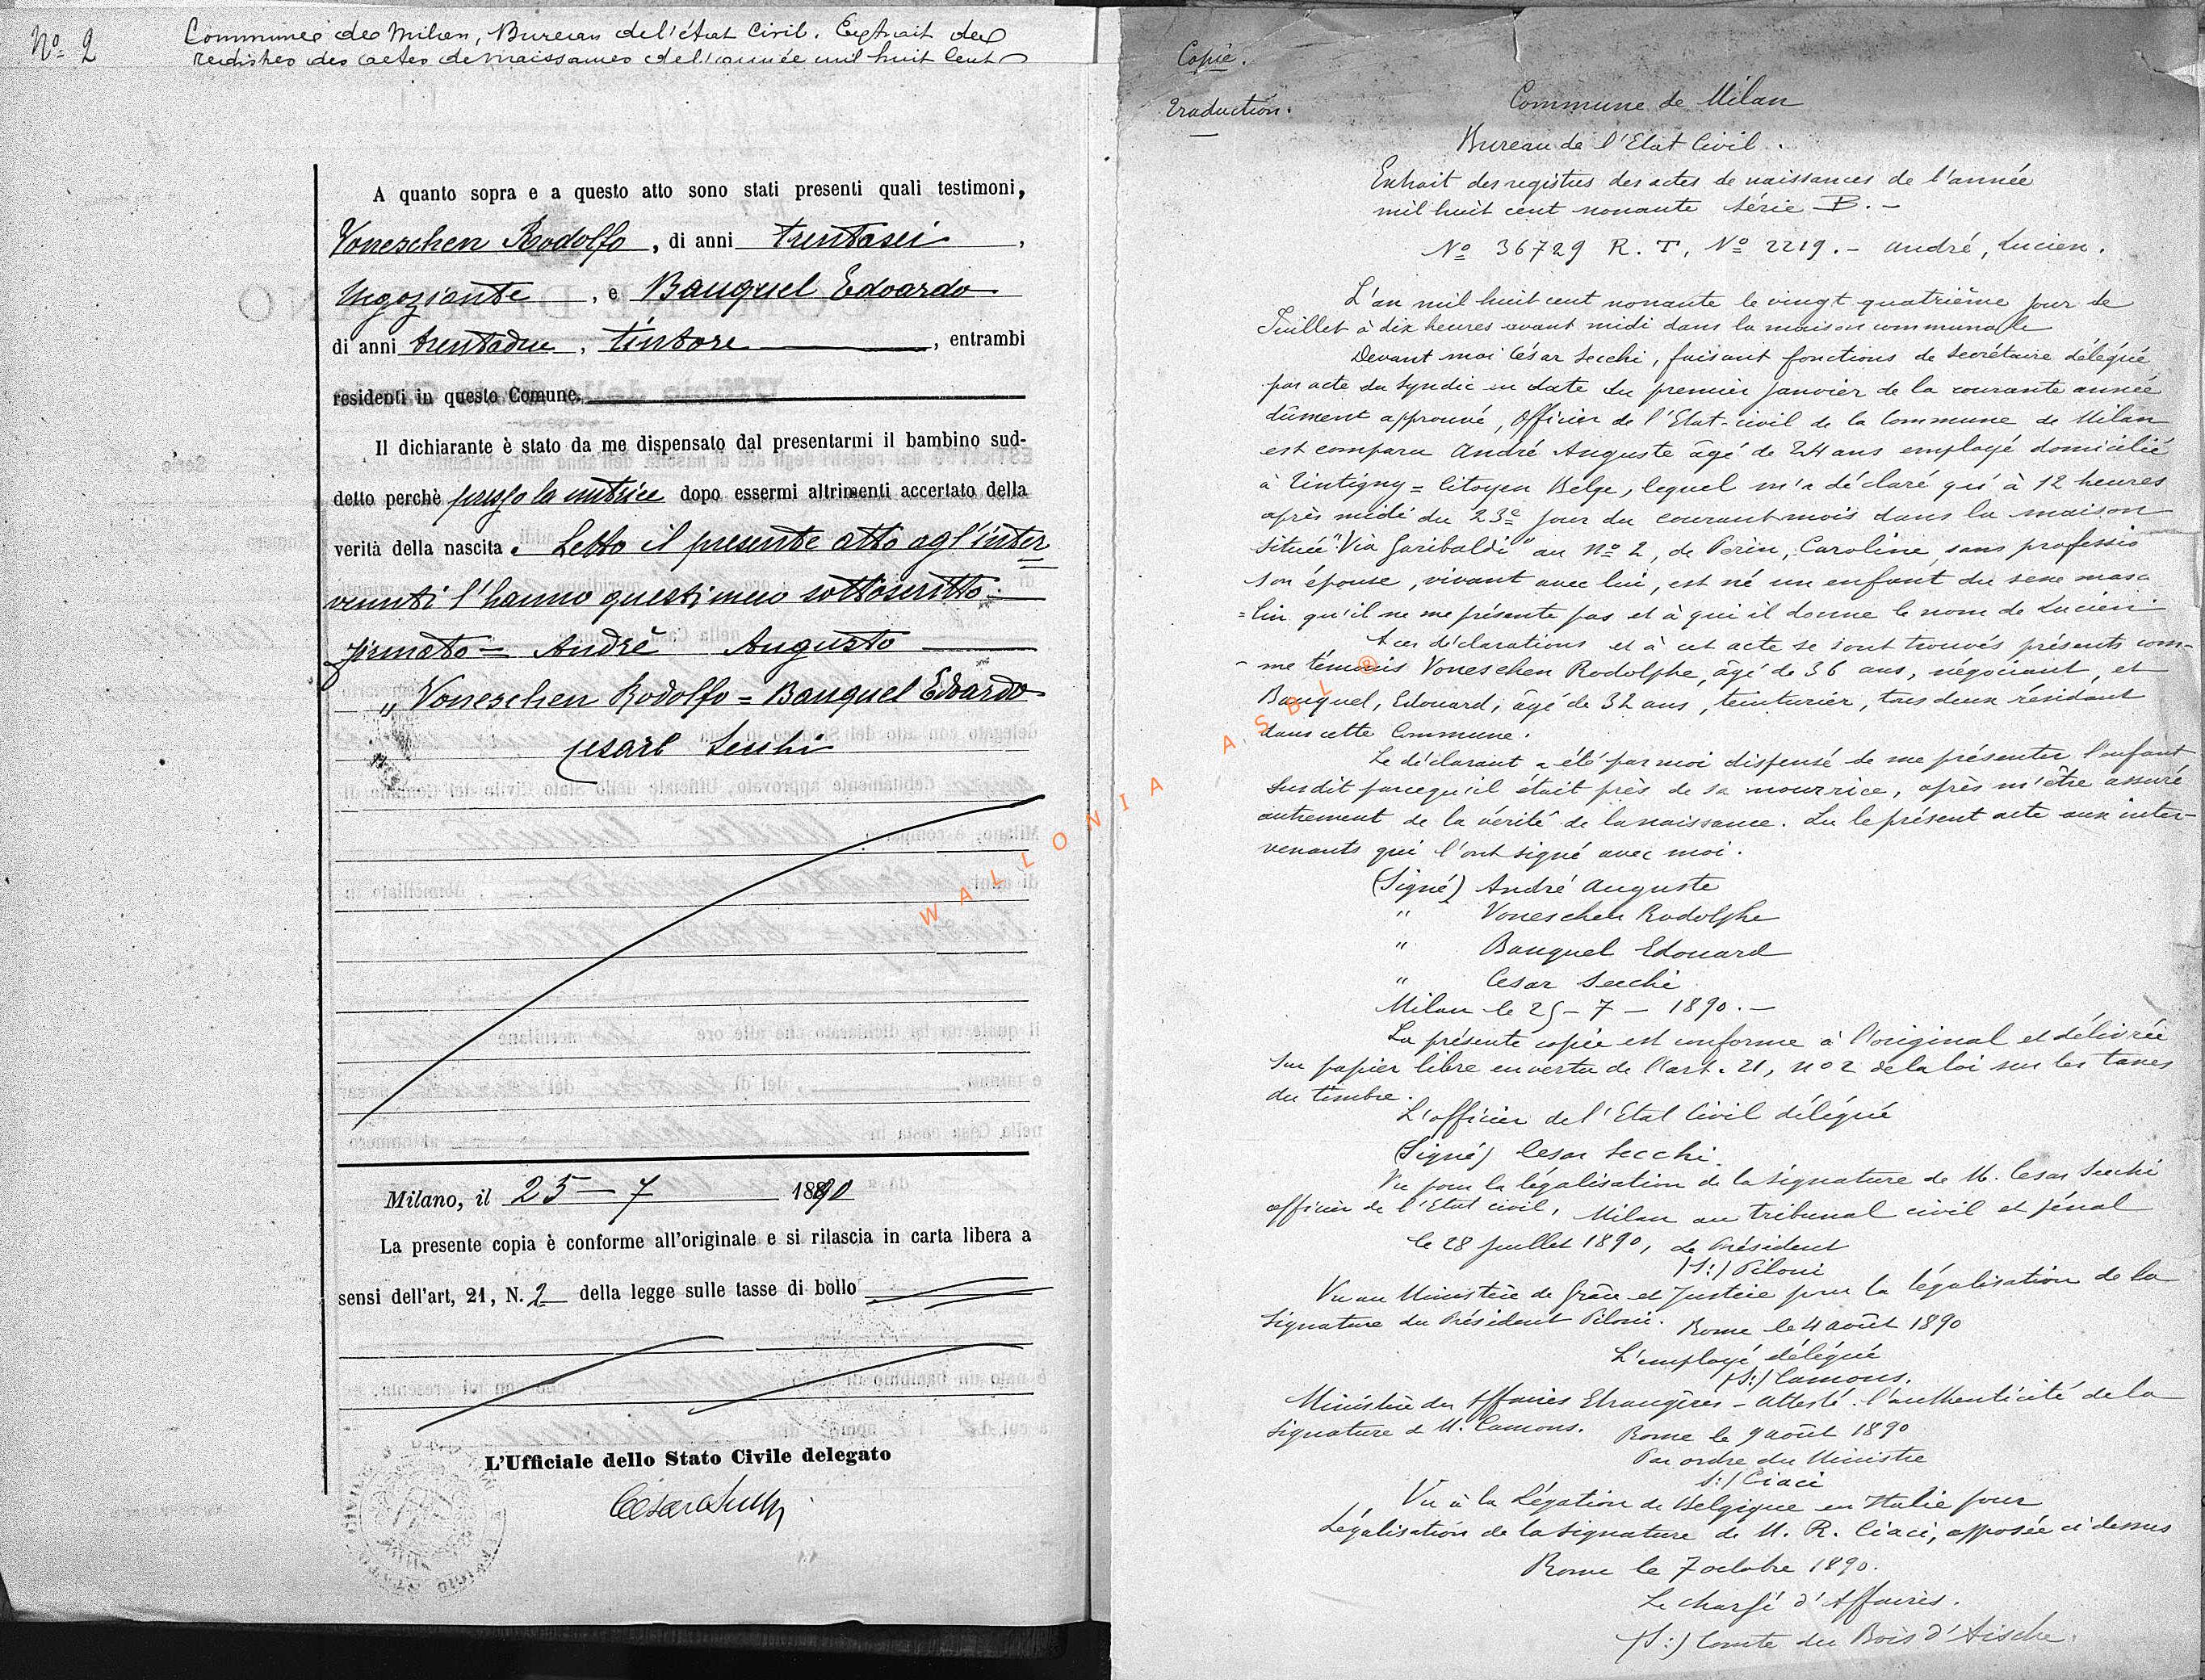 Nº 2
Commune de Milan, Bureau de l'état Civil. Extrait des
registres des actes de naissances de l'année mil huit cent
A quanto sopra e a questo atto sono stati presenti quali testimoni,
Voneschen Rodolfo, di anni trentasei,
negoziante, e Bauquel Edoardo
di anni trentadue, tintore, entrambi
residenti in questo Comune.
Il dichiarante è stato da me dispensato dal presentarmi il bambino sud-
detto perchè presso la nutrice dopo essermi altrimenti accertato della
verità della nascita. Letto il presente atto agl'inter
venuti l'hanno questi meco sottoscritto.
firmato = André Augusto
" Voneschen Rodolfo = Bauquel Edoardo
Cesare Secchi
Milano, il 25 - 7 1890
La presente copia è conforme all'originale e si rilascia in carta libera a
sensi dell'art, 21, N. 2 della legge sulle tasse di bollo
L'Ufficiale dello Stato Civile delegato
Cesare Secchi
Copie.
Traduction.
Commune de Milan
Bureau de l'Etat Civil.
Extrait des registres des actes de naissances de l'année
mil huit cent nonante série B. -
Nº 36729 R. T, Nº 2219. - André, Lucien.
L'an mil huit cent nonante le vingt quatrième jour de
Juillet à dix heures avant midi dans la maison communale
Devant moi César Secchi, faisant fonctions de secrétaire délégué
par acte du Syndic en date du premier Janvier de la courante année
dûment approuvé, Officier de l'Etat-civil de la Commune de Milan
est comparu André Auguste âgé de 24 ans employé domicilié
à Tintigny = Citoyen Belge, lequel m'a déclaré qu'à 12 heures
après midi du 23e jour du courant mois dans la maison
située "Via Garibaldi" au nº 2, de Perin, Caroline, sans professio
son épouse, vivant avec lui, est né un enfant du sexe masc
=lin qu'il ne me présente pas et à qui il donne le nom de Lucien.
A ces déclarations et à cet acte se sont trouvés présents com-
- me témoins Voneschen Rodolphe, âgé de 36 ans, négociant, et
Bauquel, Edouard, âgé de 32 ans, teinturier, tous deux résidant
dans cette Commune.
Le déclarant a été par moi dispensé de me présenter l'enfant
susdit parcequ'il était près de sa nourrice, après m'être assuré
autrement de la vérité de la naissance. Lu le présent acte aux inter-
venants qui l'ont signé avec moi.
(Signé) André Auguste
" Voneschen Rodolphe
" Bauquel Edouard
" Cesar Secchi
Milan le 25 - 7 - 1890. -
La présente copie est conforme à l'original et délivrée
sur papier libre en vertu de l'art. 21, nº 2 de la loi sur les taxes
du timbre.
L'officier de l'Etat Civil délégué
(Signé) Cesar Secchi.
Vu pour la légalisation de la signature de M. Cesar Secchi
officier de l'Etat civil, Milan au tribunal civil et pénal
le 28 juillet 1890, Le Président
(S:) Piloni
Vu au Ministère de Grâce et Justice pour la légalisation de la
signature du Président Piloni. Rome le 4 août 1890
L'employé délégué
(S:) Camons.
Ministère des Affaires Etrangères - attesté l'authenticité de la
signature d M. Camons. Rome le 9 août 1890
Par ordre du Ministre
S:) Ciaci
Vu à la Légation de Belgique en Italie pour
Légalisation de la signature de M. R. Ciaci, apposée ci dessus
Rome le 7 octobre 1890.
Le chargé d'Affaires.
(S:) Comte du Bois d'Aische.
WALLONIA ASBL ®